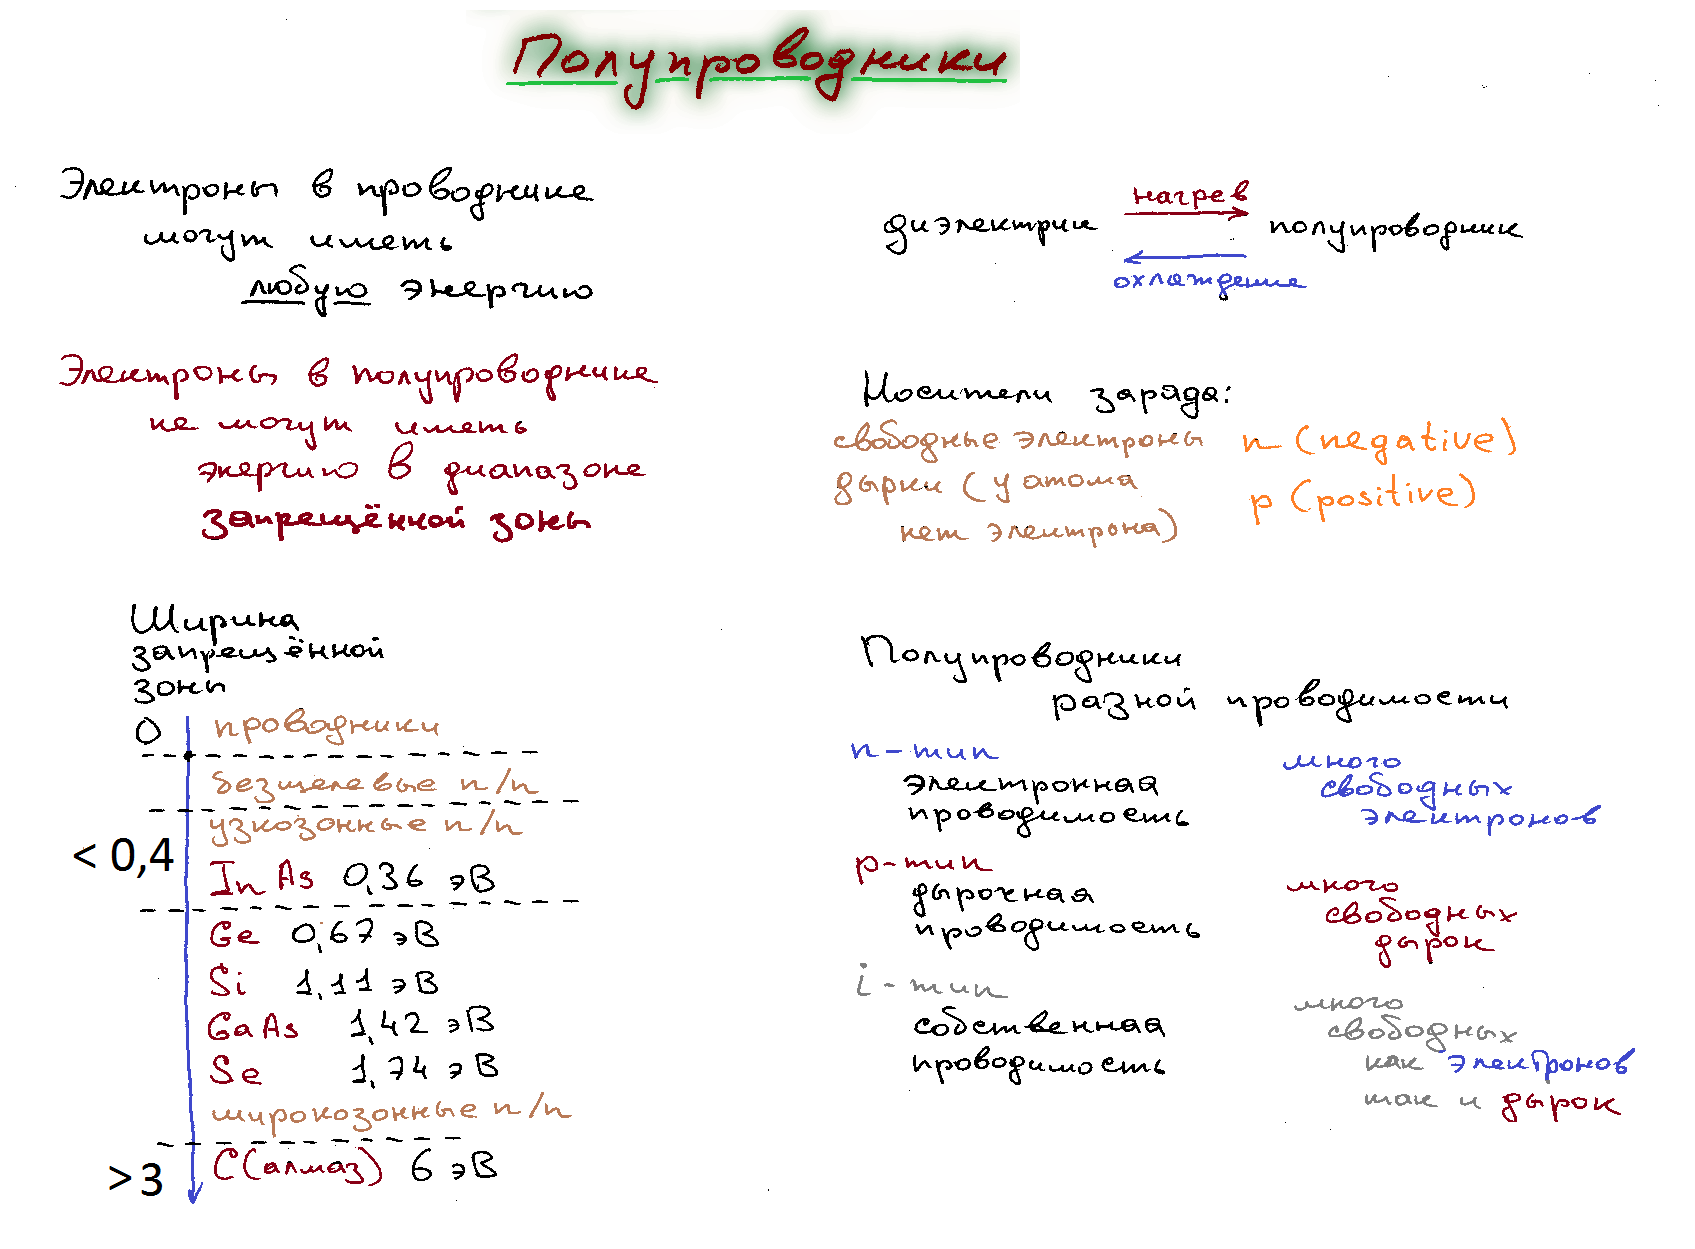 Полупроводники
Электроны в проводнике
могут иметь
любую энергию
Электроны в полупроводнике
не могут иметь
энергию в диапазоне
запрещённой зоны
Ширина
запрещённой
зоны
0 проводники
безщелевые п/п
узкозонные п/п
< 0,4
InAs 0,36 эВ
Ge 0,67 эВ
Si 1,11 эВ
GaAs 1,42 эВ
Se 1,74 эВ
широкозонные п/п
>3 C(алмаз) 6 эВ
нагрев
диэлектрик полупроводник
охлаждение
Носители заряда:
свободные электроны n (negative)
дырки (у атома p (positive)
нет электрона)
Полупроводники
разной проводимости
n-тип много
электронная свободных
проводимость электронов
p-тип много
дырочная свободных
проводимость дырок
i-тип много
собственная свободных
проводимость как электронов
так и дырок